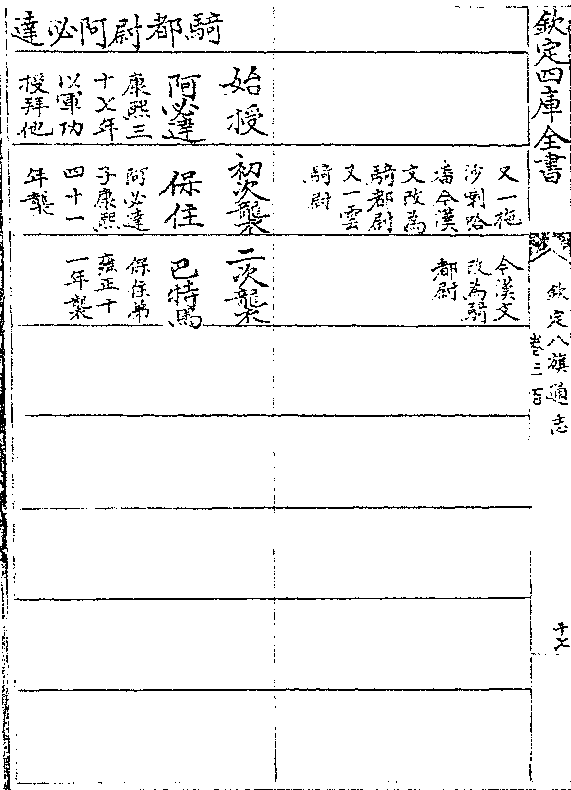 欽定四庫全書
欽定八旗通志
卷三百
十七
又一拖
沙剌哈
番今漢
文改為
騎都尉
又一雲
騎尉
今漢文
改為騎
都尉
騎都尉阿必達
始授
阿必達
康熙三
十七年
以軍功
授拜他
初次襲
保住
阿必達
子康熙
四十一
年襲
二次襲
巴特馬
保住弟
雍正十
一年襲